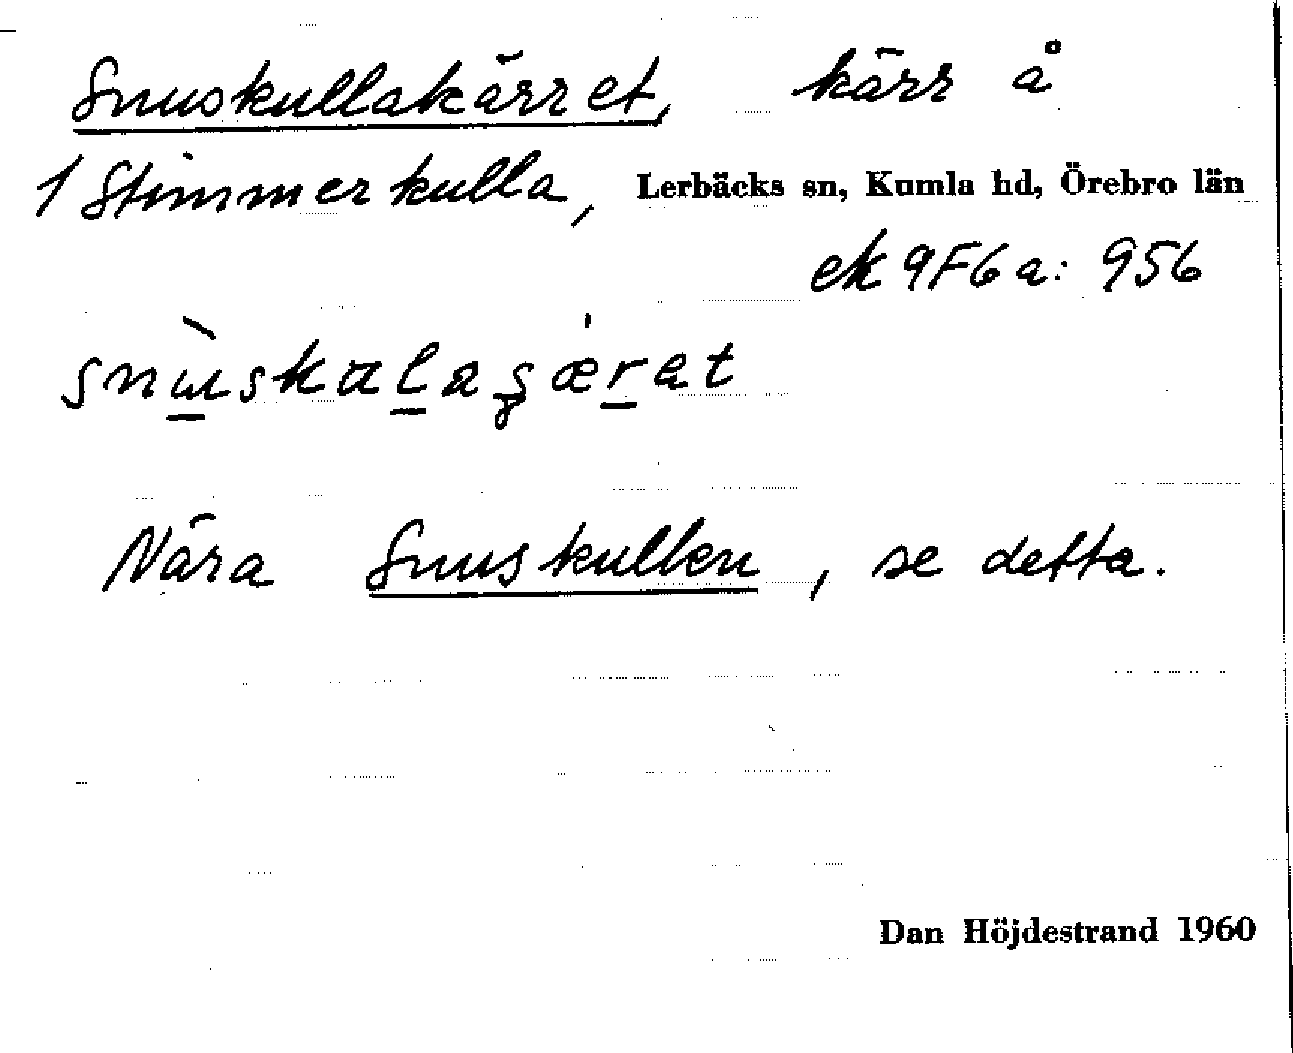 Snuskullakärret, kärr å
1 Stimmerkulla, Lerbäcks sn, Kumla hd, Örebro län
ek 9F6a: 956
Nära Snuskullen, se detta.
Dan Höjdestrand 1960